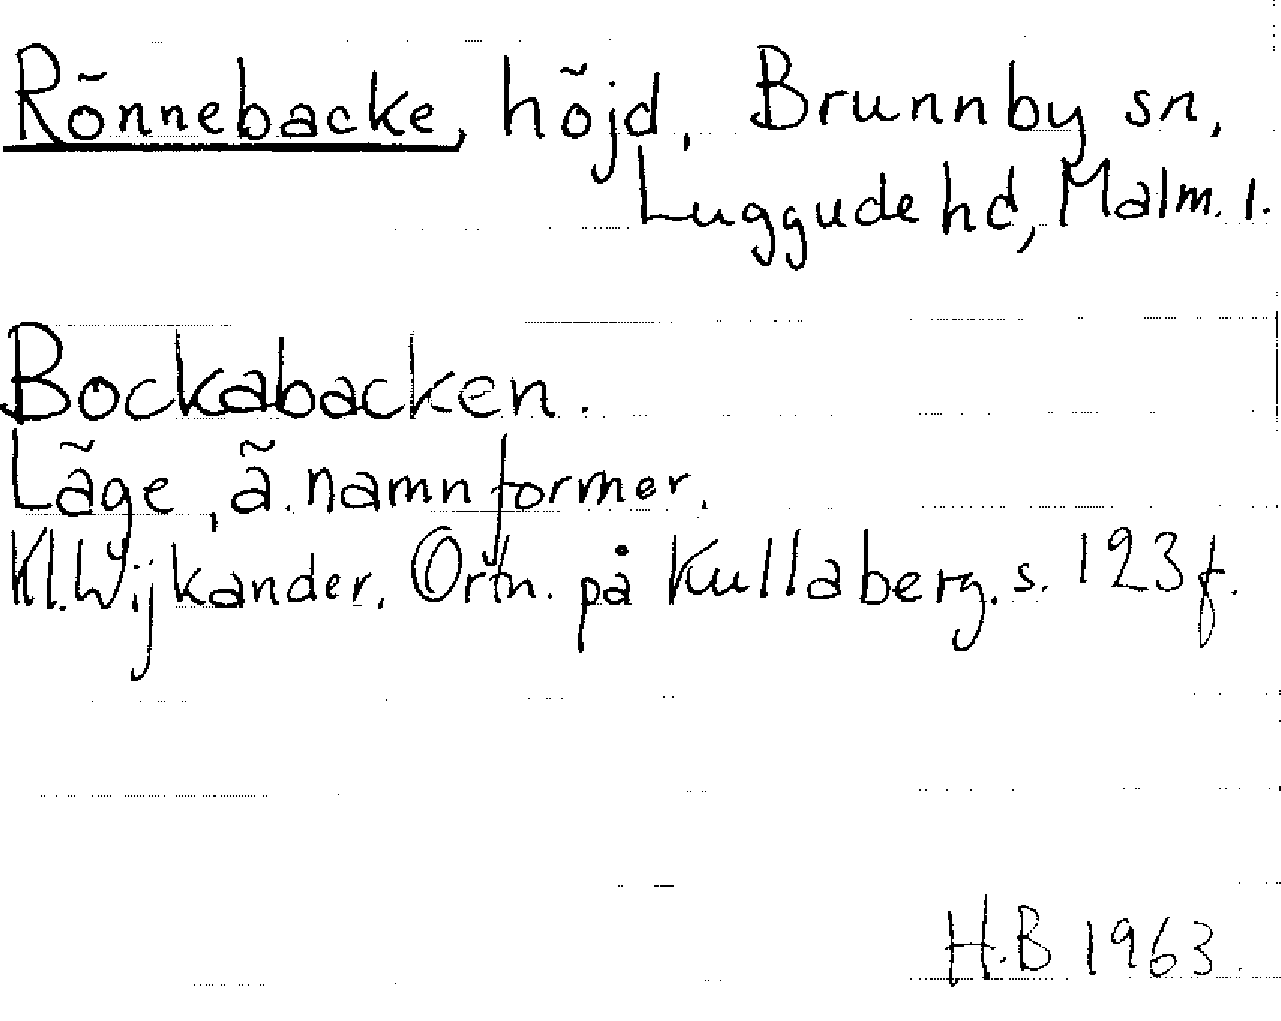 Rönnebacke, höjd, Brunnby sn,
Luggude hd, Malm. l.
Bockabacken.
Läge, ä. namnformer.
Kl. Wijkander. Ortn. på Kullaberg. s. 123 f.
H.B 1963.